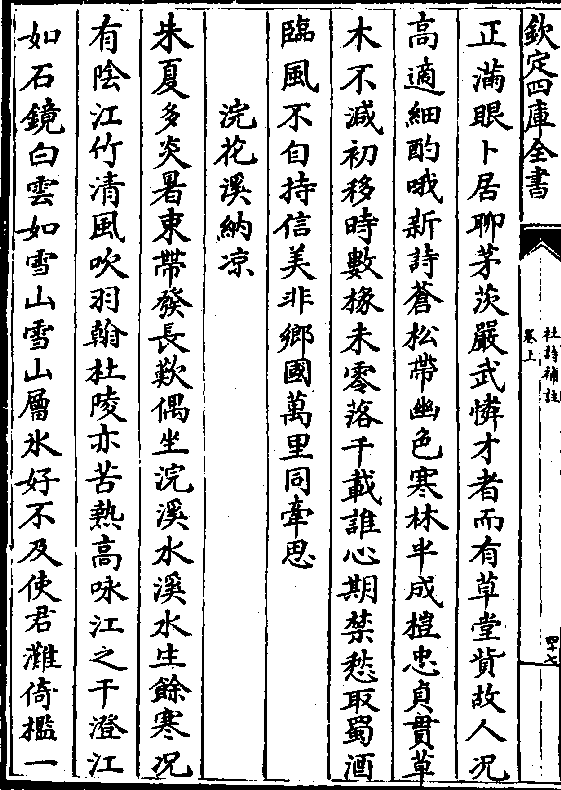 欽定四庫全書
杜詩補註
卷上
四十七
正滿眼卜居聊茅茨嚴武憐才者而有草堂貲故人况
高適細酌哦新詩蒼松帶幽色寒林半成榿忠貞貫草
木不減初移時數椽未零落千載誰心期禁愁取蜀酒
臨風不自持信美非鄉國萬里同牽思
浣花溪納凉
朱夏多炎暑束帶發長歎偶坐浣溪水溪水生餘寒况
有陰江竹清風吹羽翰杜陵亦苦熱高咏江之干澄江
如石鏡白雲如雪山雪山層氷好不及使君灘倚檻一